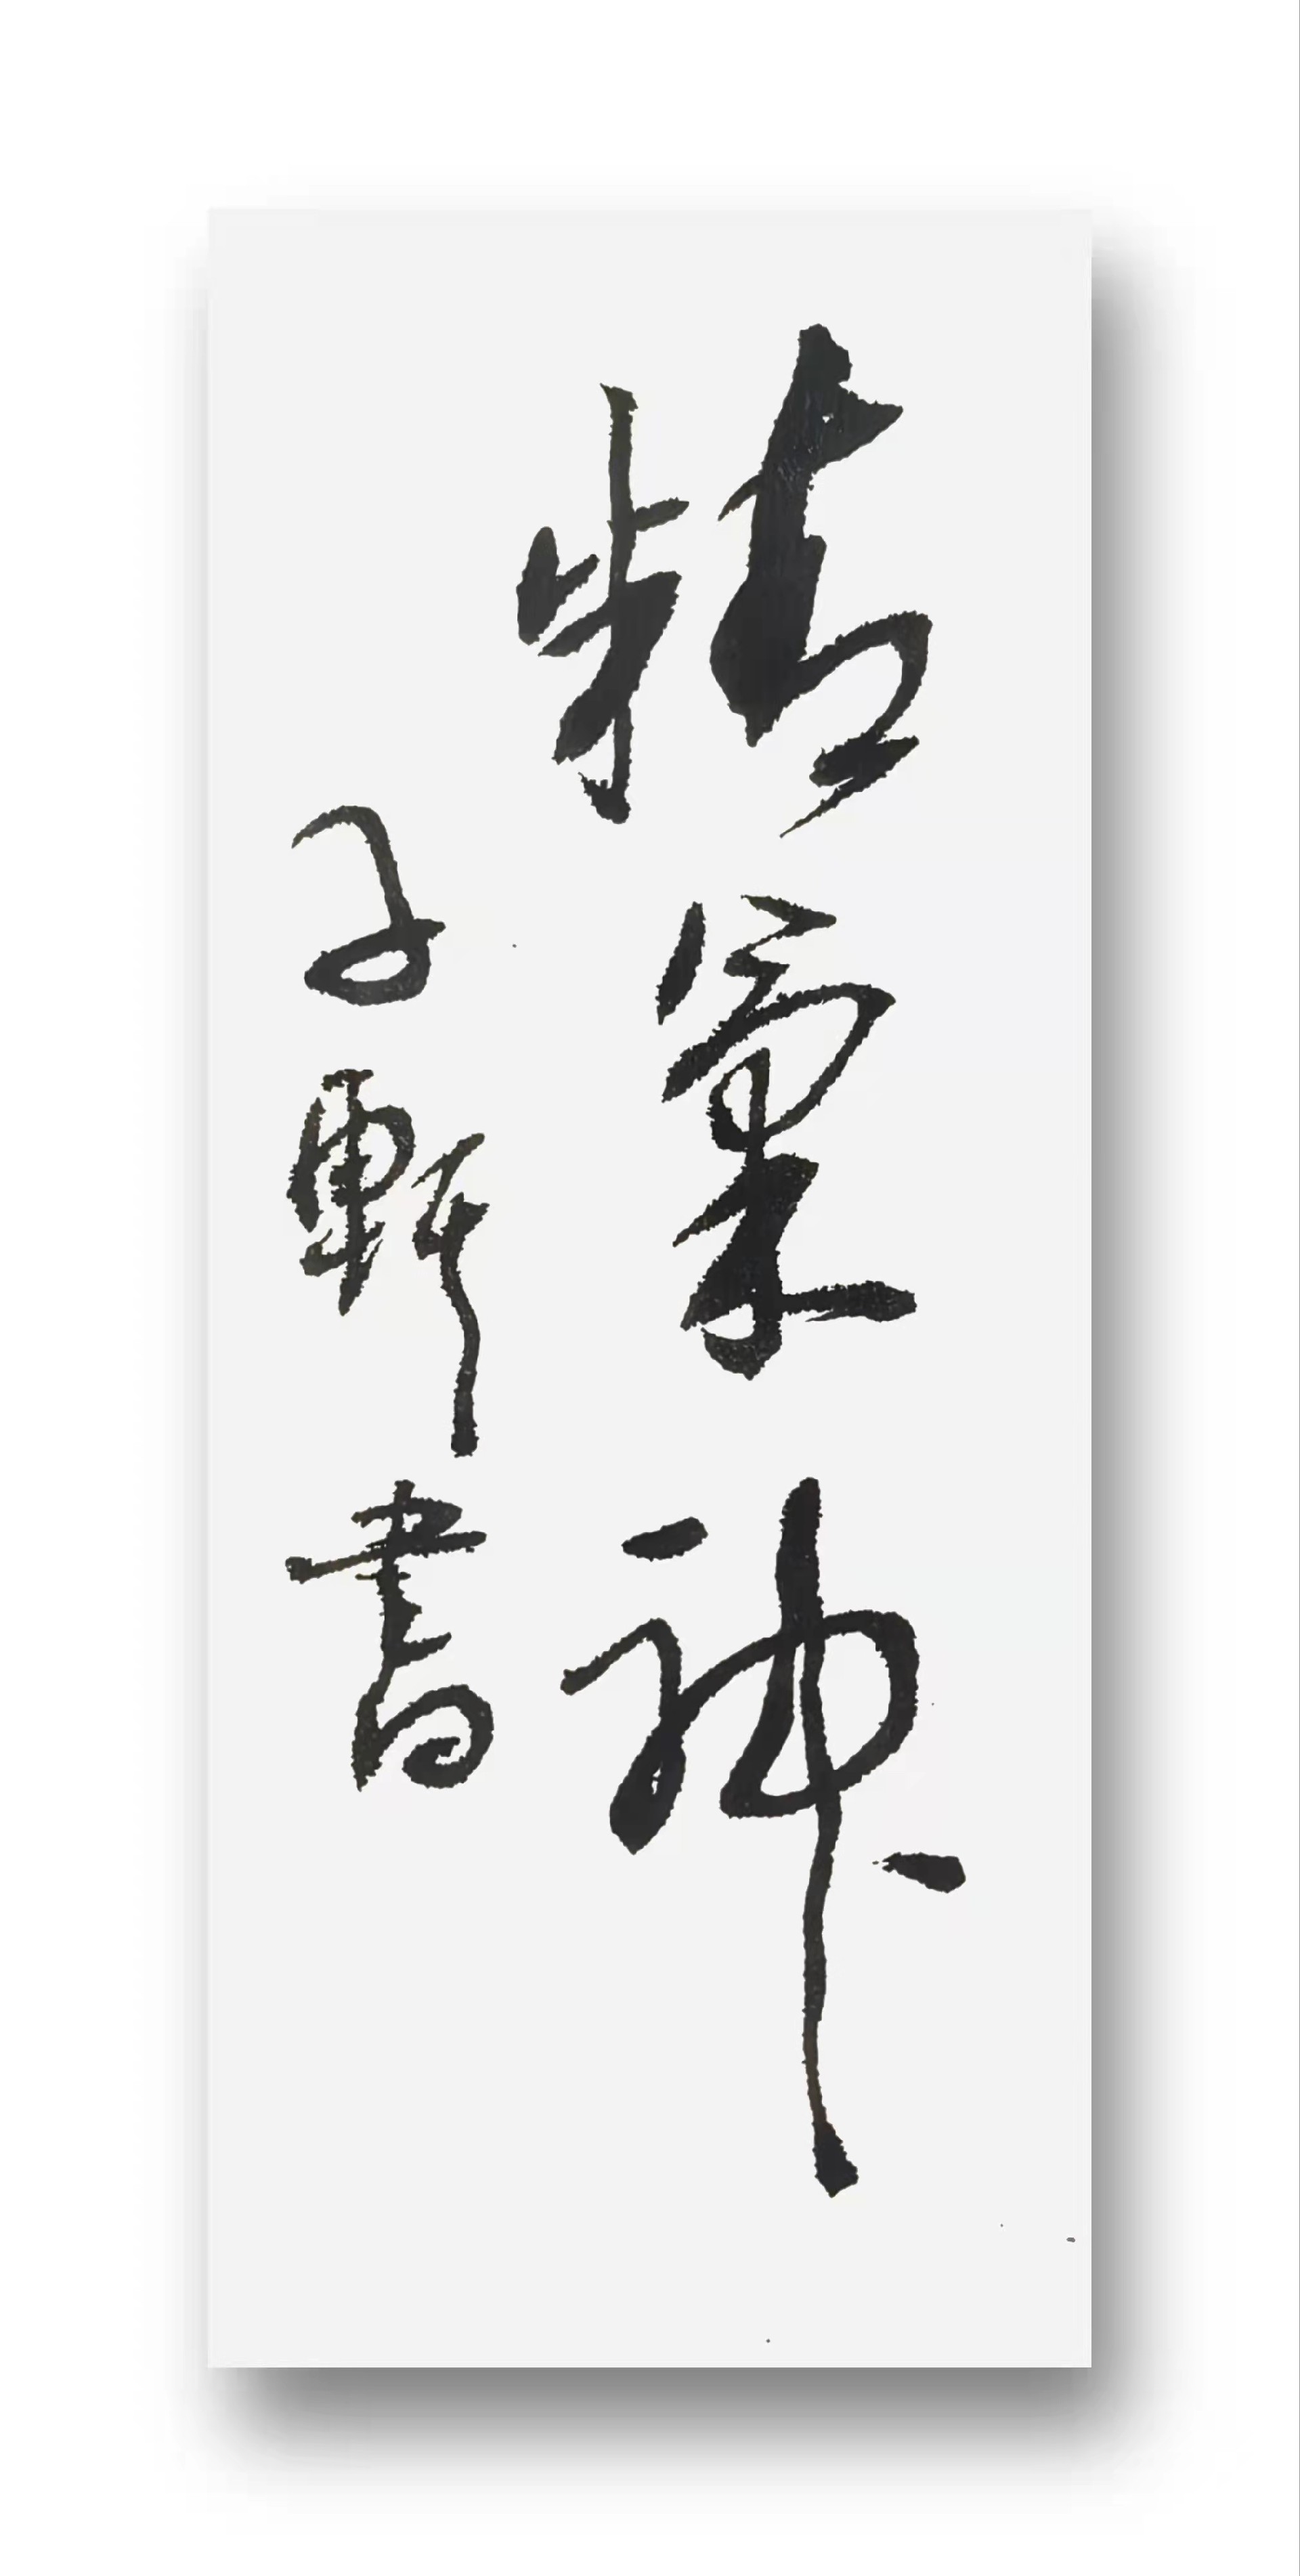 精氣神
子軒書